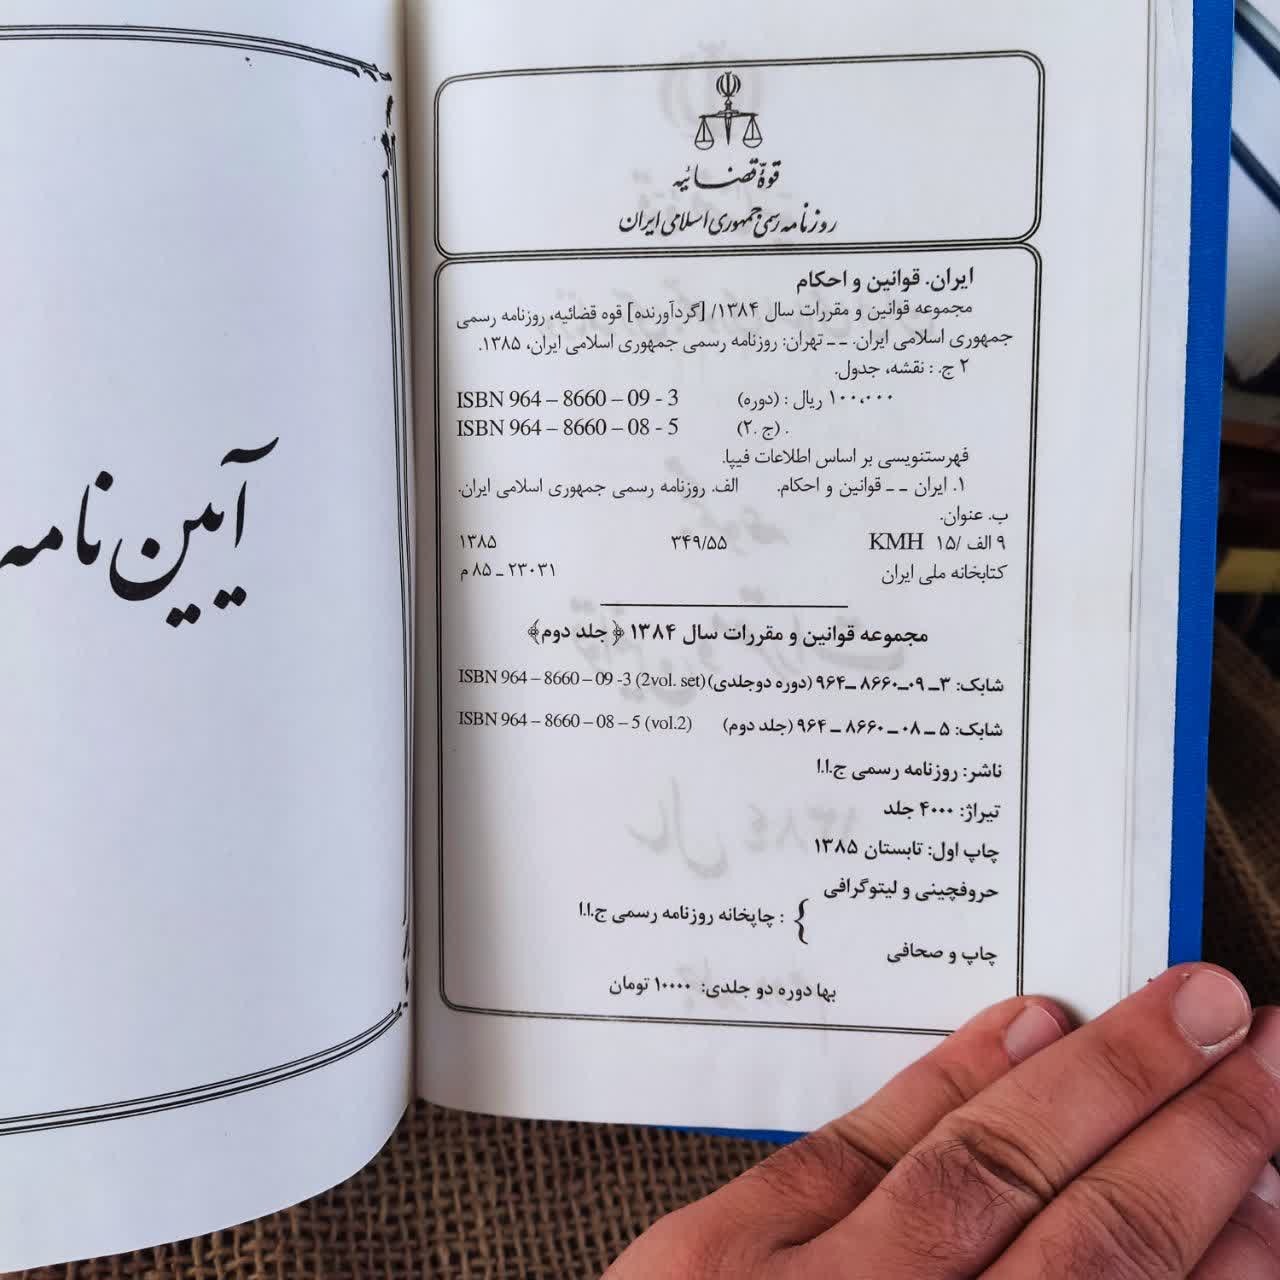 قوّة قضائیه
روزنامه رسمی جمهوری اسلامی ایران
ایران. قوانین و احکام
مجموعه قوانین و مقررات سال ۱۳۸۴/ [گردآورنده] قوه قضائیه، روزنامه رسمی
جمهوری اسلامی ایران. ــ تهران: روزنامه رسمی جمهوری اسلامی ایران، ۱۳۸۵.
۲ ج. : نقشه، جدول.
۱۰۰،۰۰۰ ریال : (دوره) ISBN 964 – 8660 – 09 - 3
. (ج .۲) ISBN 964 – 8660 – 08 - 5
فهرستنویسی بر اساس اطلاعات فیپا.
۱. ایران ــ قوانین و احکام. الف. روزنامه رسمی جمهوری اسلامی ایران.
ب. عنوان.
۹ الف /۱۵ KMH ۳۴۹/۵۵ ۱۳۸۵
کتابخانه ملی ایران ۲۳۰۳۱ ـ ۸۵ م
مجموعه قوانین و مقررات سال ۱۳۸۴ ﴿جلد دوم﴾
شابک: ۳ـ ۰۹ـ ۸۶۶۰ ـ۹۶۴ (دوره دوجلدی) ISBN 964 – 8660 – 09 -3 (2vol. set)
شابک: ۵ ـ ۰۸ ـ ۸۶۶۰ ـ ۹۶۴ (جلد دوم) ISBN 964 – 8660 – 08 – 5 (vol.2)
ناشر: روزنامه رسمی ج.ا.ا
تیراژ: ۴۰۰۰ جلد
چاپ اول: تابستان ۱۳۸۵
حروفچینی و لیتوگرافی
: چاپخانه روزنامه رسمی ج.ا.ا
چاپ و صحافی
بها دوره دو جلدی: ۱۰۰۰۰ تومان
آیین نامه